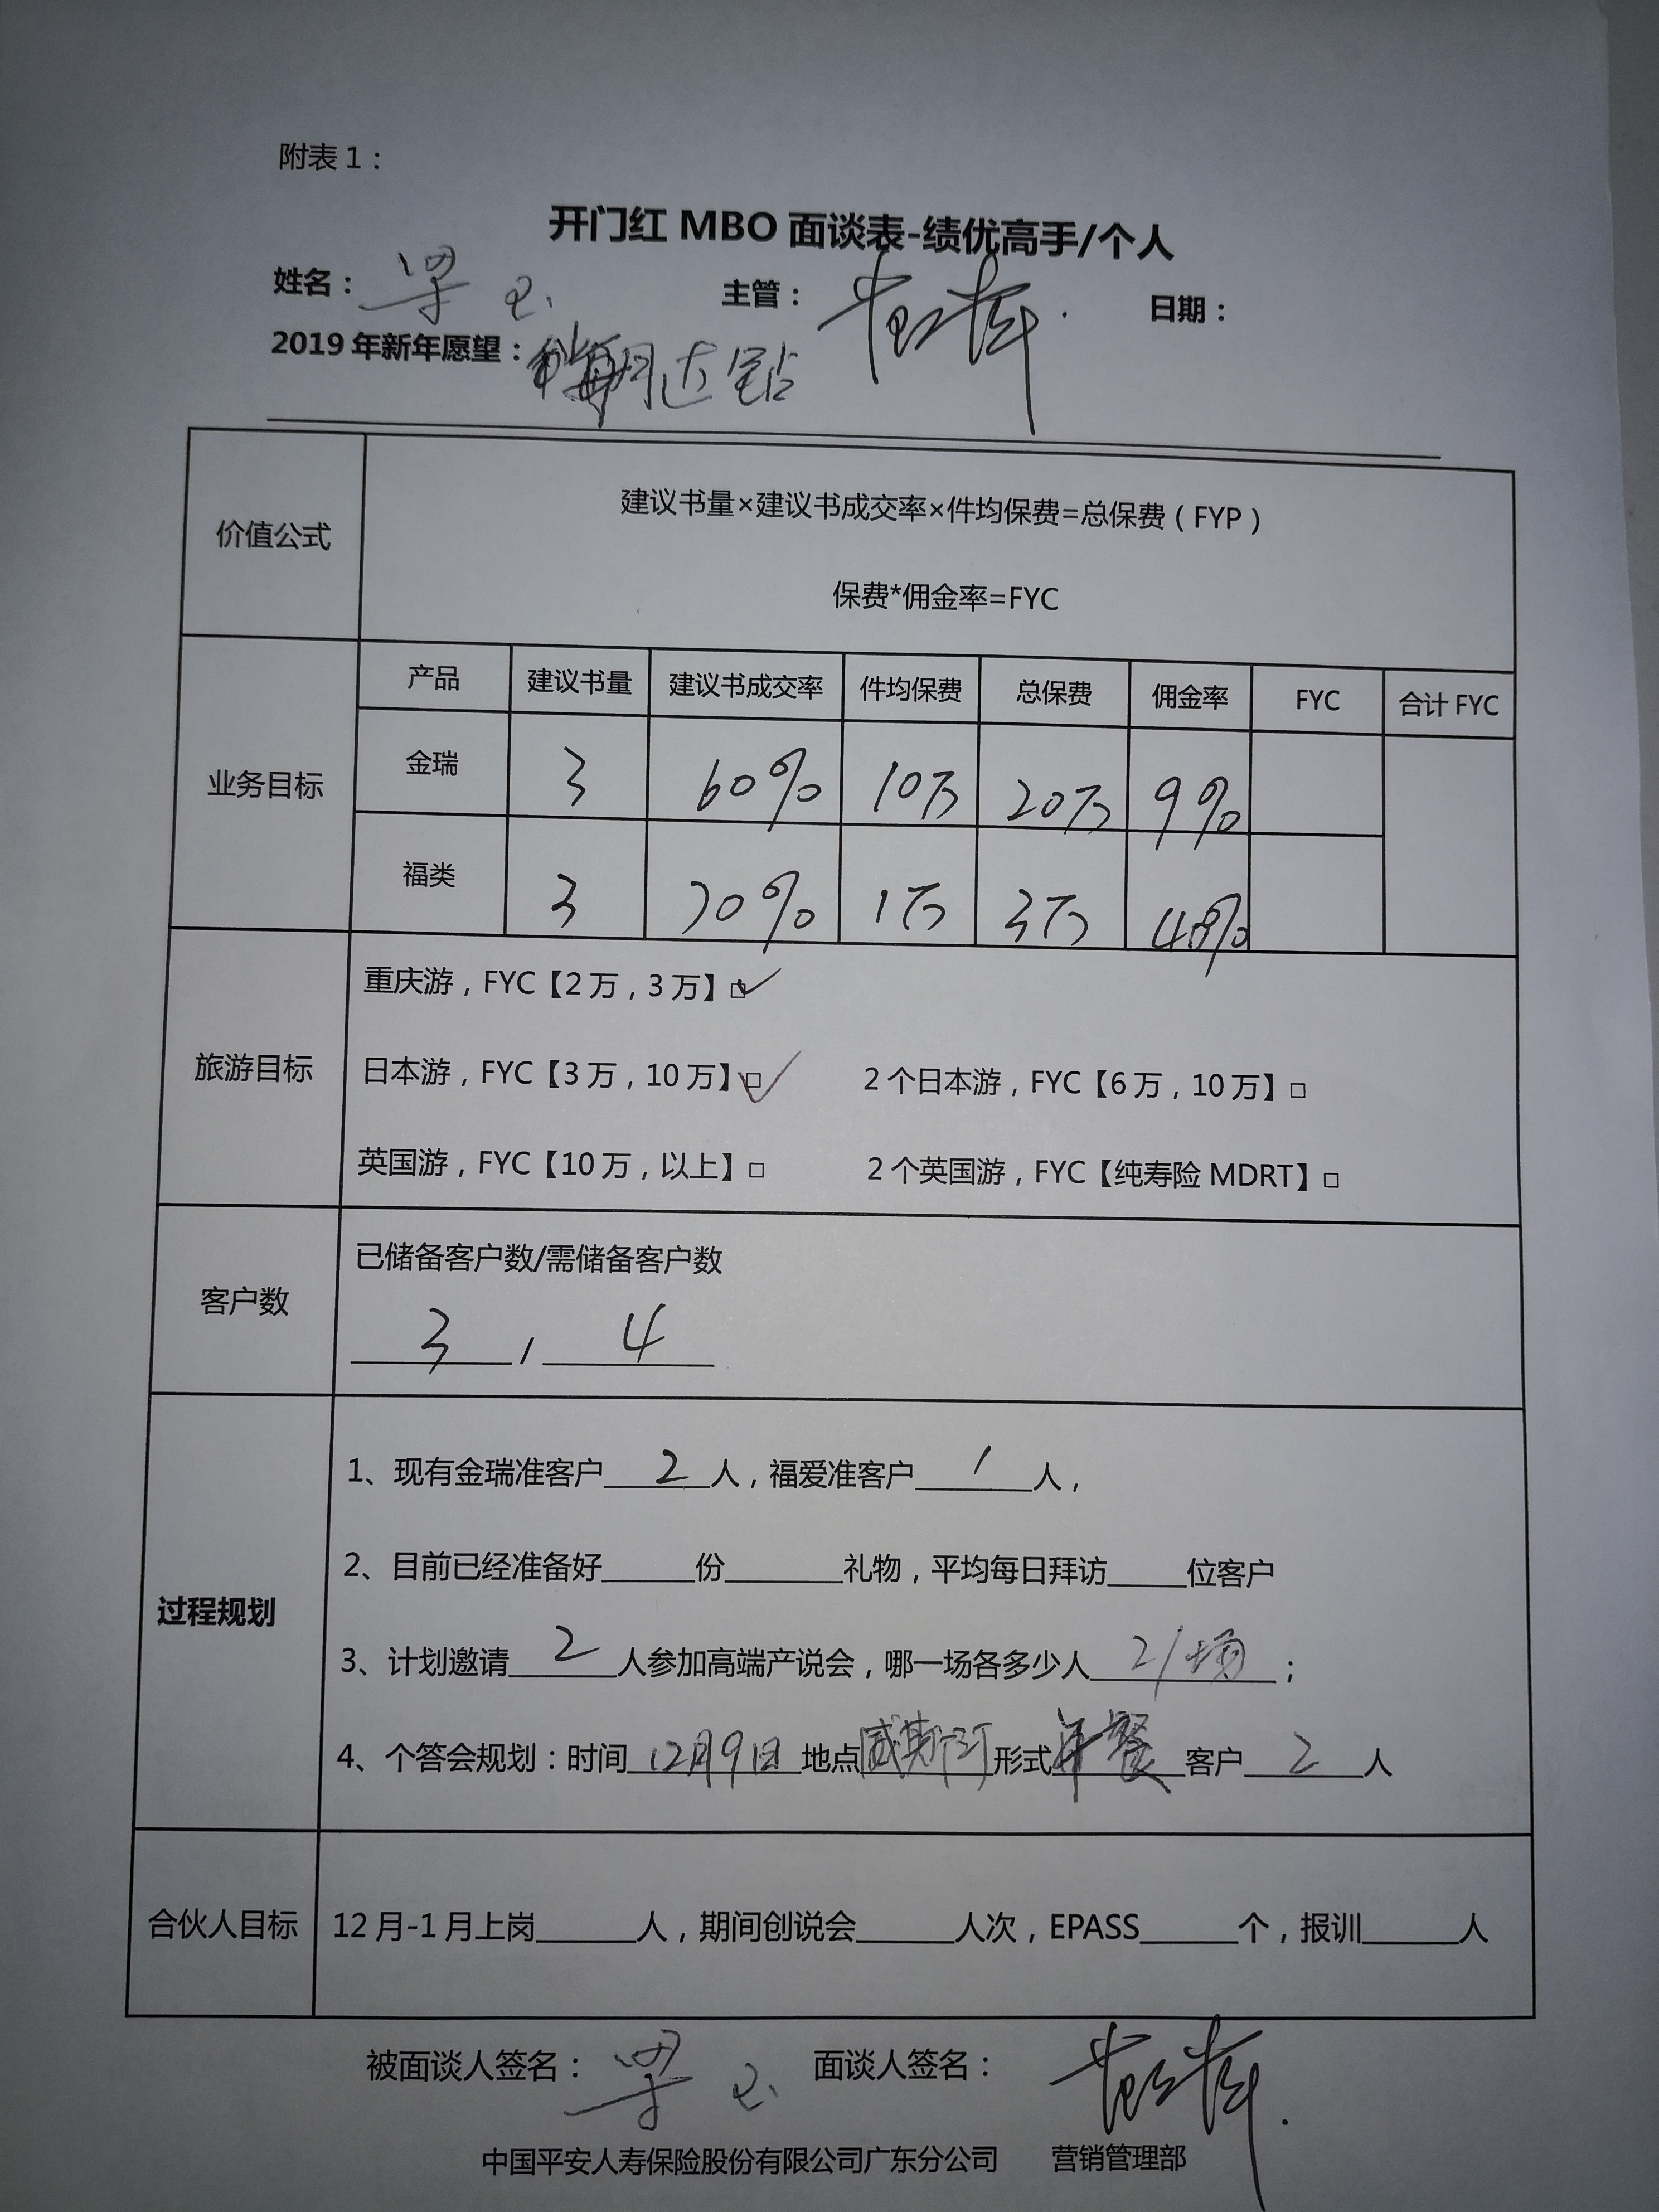 附表1：
开门红 MBO 面谈表-绩优高手/个人
姓名： 主管： 日期：
2019年新年愿望：每月达钻
价值公式
建议书量×建议书成交率×件均保费=总保费（FYP）
保费*佣金率=FYC
业务目标
产品 建议书量 建议书成交率 件均保费 总保费 佣金率 FYC 合计 FYC
金瑞 3 60% 10万 20万 9%
福类 3 70% 1万 3万 48%
旅游目标
重庆游，FYC【2万，3万】□✓
日本游，FYC【3万，10万】□✓ 2个日本游，FYC【6万，10万】□
英国游，FYC【10万，以上】□ 2个英国游，FYC【纯寿险 MDRT】□
客户数
已储备客户数/需储备客户数
3 / 4
过程规划
1、现有金瑞准客户 2 人，福爱准客户 1 人，
2、目前已经准备好______份______礼物，平均每日拜访_____位客户
3、计划邀请 2 人参加高端产说会，哪一场各多少人 2/场 ；
4、个答会规划：时间 12月9日 地点 威斯汀 形式 午餐 客户 2 人
合伙人目标
12月-1月上岗______人，期间创说会______人次，EPASS______个，报训______人
被面谈人签名： 面谈人签名：
中国平安人寿保险股份有限公司广东分公司 营销管理部